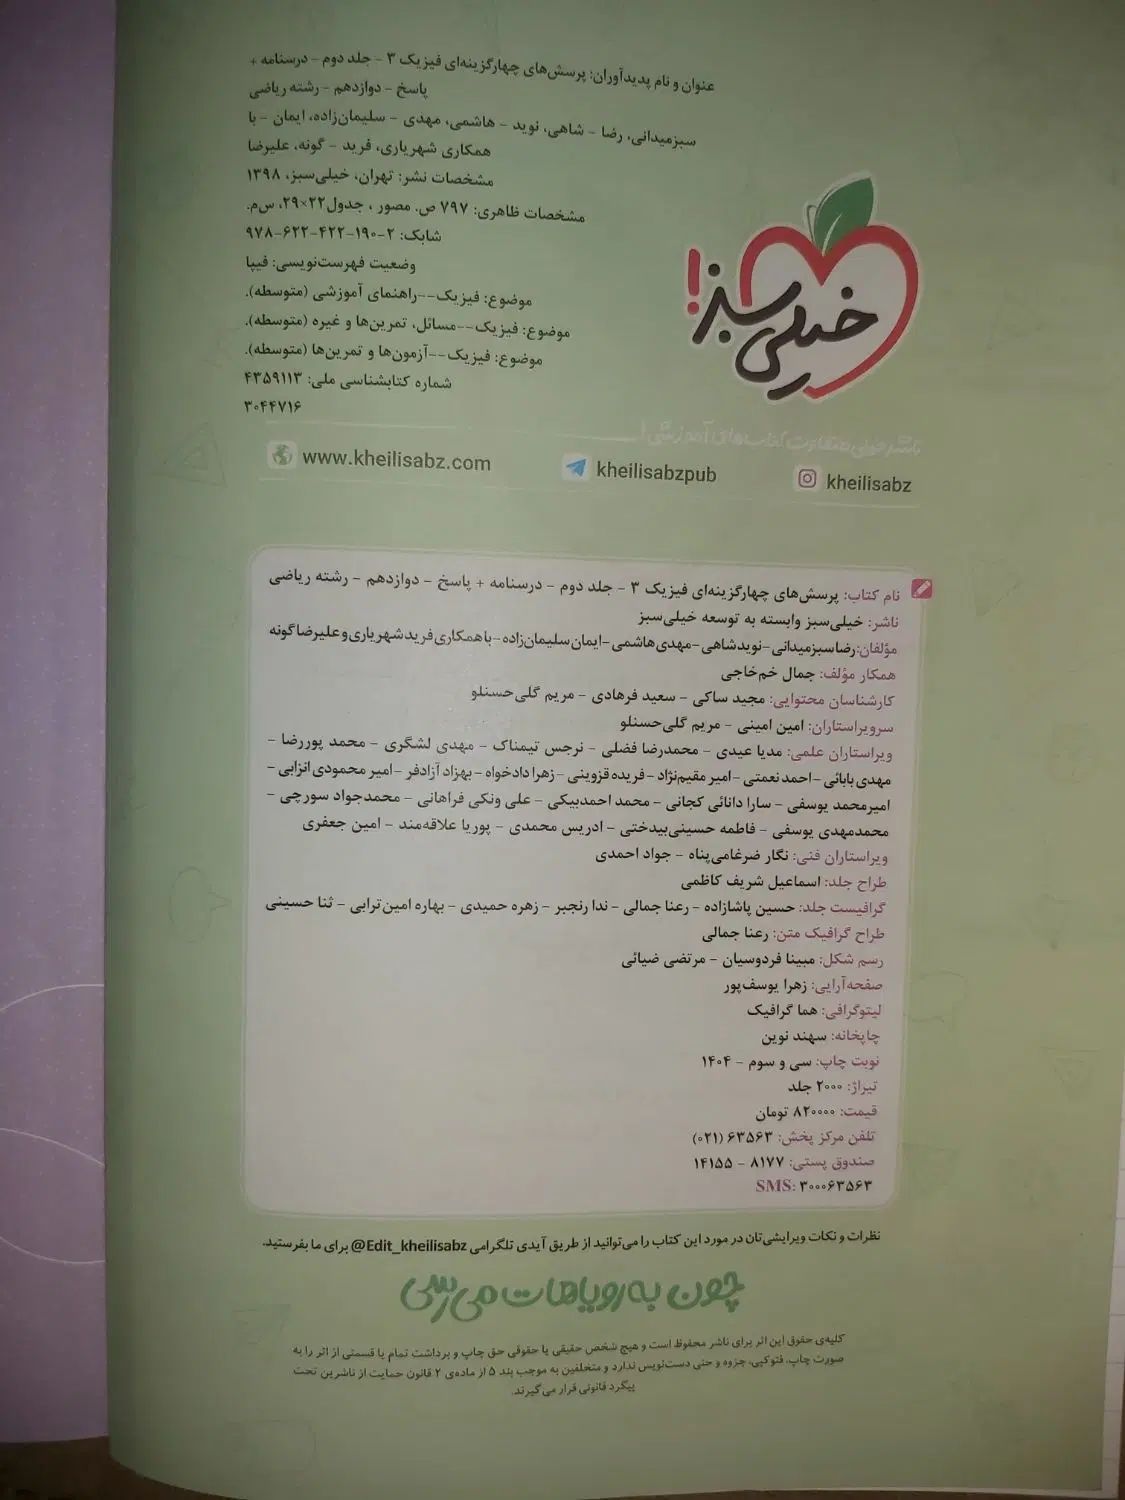 عنوان و نام پدیدآوران: پرسش‌های چهارگزینه‌ای فیزیک ۳ - جلد دوم - درسنامه +
پاسخ - دوازدهم - رشته ریاضی
سبزمیدانی، رضا - شاهی، نوید - هاشمی، مهدی - سلیمان‌زاده، ایمان - با
همکاری شهریاری، فرید - گونه، علیرضا
مشخصات نشر: تهران، خیلی‌سبز، ۱۳۹۸
مشخصات ظاهری: ۷۹۷ ص. مصور ، جدول۲۲×۲۹، س‌م.
شابک: ۲-۱۹۰-۴۲۲-۶۲۲-۹۷۸
وضعیت فهرست‌نویسی: فیپا
موضوع: فیزیک--راهنمای آموزشی (متوسطه).
موضوع: فیزیک--مسائل، تمرین‌ها و غیره (متوسطه).
موضوع: فیزیک--آزمون‌ها و تمرین‌ها (متوسطه).
شماره کتابشناسی ملی: ۴۳۵۹۱۱۳
۳۰۴۴۷۱۶
خیلی سبز!
ناشر خیلی متفاوت کتاب‌های آموزشی!
www.kheilisabz.com kheilisabzpub kheilisabz
نام کتاب: پرسش‌های چهارگزینه‌ای فیزیک ۳ - جلد دوم - درسنامه + پاسخ - دوازدهم - رشته ریاضی
ناشر: خیلی‌سبز وابسته به توسعه خیلی‌سبز
مؤلفان: رضا سبزمیدانی - نوید شاهی - مهدی هاشمی - ایمان سلیمان‌زاده - با همکاری فرید شهریاری و علیرضا گونه
همکار مؤلف: جمال خم‌خاجی
کارشناسان محتوایی: مجید ساکی - سعید فرهادی - مریم گلی‌حسنلو
سرویراستاران: امین امینی - مریم گلی‌حسنلو
ویراستاران علمی: مدیا عیدی - محمدرضا فضلی - نرجس تیمناک - مهدی لشگری - محمد پوررضا -
مهدی بابائی - احمد نعمتی - امیر مقیم‌نژاد - فریده قزوینی - زهرا دادخواه - بهزاد آزادفر - امیر محمودی انزابی -
امیرمحمد یوسفی - سارا دانائی کجانی - محمد احمدبیکی - علی ونکی فراهانی - محمدجواد سورچی -
محمدمهدی یوسفی - فاطمه حسینی‌بیدختی - ادریس محمدی - پوریا علاقه‌مند - امین جعفری
ویراستاران فنی: نگار ضرغامی‌پناه - جواد احمدی
طراح جلد: اسماعیل شریف کاظمی
گرافیست جلد: حسین پاشازاده - رعنا جمالی - ندا رنجبر - زهره حمیدی - بهاره امین‌ترابی - ثنا حسینی
طراح گرافیک متن: رعنا جمالی
رسم شکل: مبینا فردوسیان - مرتضی ضیائی
صفحه‌آرایی: زهرا یوسف‌پور
لیتوگرافی: هما گرافیک
چاپخانه: سهند نوین
نوبت چاپ: سی و سوم - ۱۴۰۴
تیراژ: ۲۰۰۰ جلد
قیمت: ۸۲۰۰۰۰ تومان
تلفن مرکز پخش: ۶۳۵۶۳ (۰۲۱)
صندوق پستی: ۸۱۷۷ - ۱۴۱۵۵
SMS: ۳۰۰۰۶۳۵۶۳
نظرات و نکات ویرایشی‌تان در مورد این کتاب را می‌توانید از طریق آیدی تلگرامی @Edit_kheilisabz برای ما بفرستید.
چون به رویاهات می‌رسی
کلیه‌ی حقوق این اثر برای ناشر محفوظ است و هیچ شخص حقیقی یا حقوقی حق چاپ و برداشت تمام یا قسمتی از اثر را به
صورت چاپ، فتوکپی، جزوه و حتی دست‌نویس ندارد و متخلفین به موجب بند ۵ از ماده‌ی ۲ قانون حمایت از ناشرین تحت
پیگرد قانونی قرار می‌گیرند.